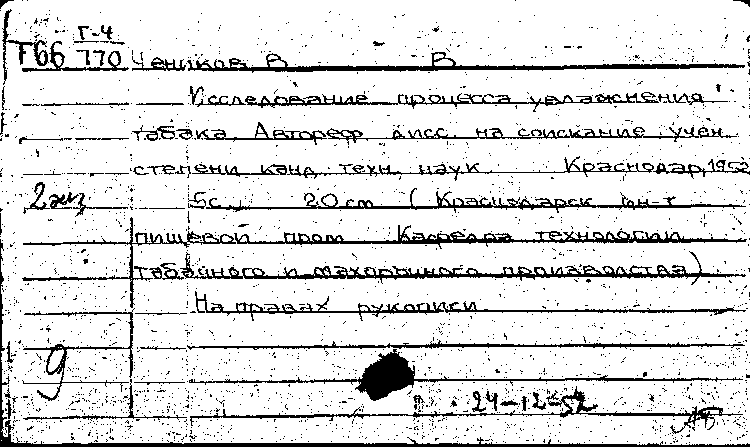 Г-4
Т66 770 Чеников, В В
Исследование процесса увлажнения
табака. Автореф. дисс. на соискание учен.
степени канд. техн. наук Краснодар, 1952
2 экз 5с. 20 cm (Краснодарск ин-т
пищевой пром Кафедра технологии
табачного и махорочного производства)
На правах рукописи
9
24-12-52